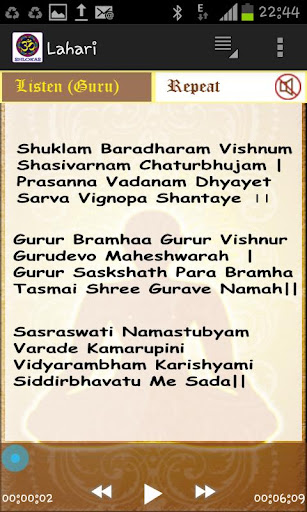 22:44
SHLOKAS
Lahari
Listen (Guru)
Repeat
Shuklam Baradharam Vishnum
Shasivarnam Chaturbhujam |
Prasanna Vadanam Dhyayet
Sarva Vignopa Shantaye ||
Gurur Bramhaa Gurur Vishnur
Gurudevo Maheshwarah |
Gurur Saskshath Para Bramha
Tasmai Shree Gurave Namah||
Sasraswati Namastubyam
Varade Kamarupini
Vidyarambham Karishyami
Siddirbhavatu Me Sada||
00:00:02
00:06:09